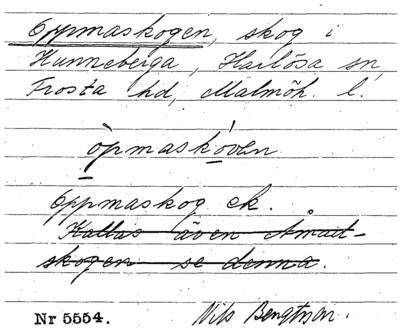 Oppmaskogen, skog i
Hunneberga, Harlösa sn
Frosta hd, Malmöh. l.
òpmaskóven
Oppmaskog ek.
Kallas även Åmad-
skogen se denna.
Nr 5554. Nils Bengtson.